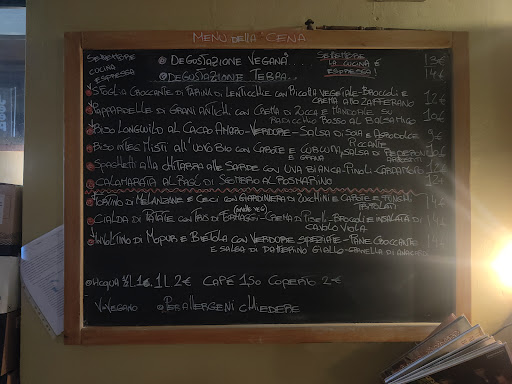 MENÙ della CENA
SETTEMBRE CUCINA ESPRESSA
DEGUSTAZIONE VEGANA SETTEMBRE 13€
DEGUSTAZIONE TERRA... LA CUCINA È ESPRESSA! 14€
SFOGLIA CROCCANTE DI FARINA DI LENTICCHIE CON RICOTTA VEGETALE - BROCCOLI E
CREMA ALLO ZAFFERANO 12€
PAPPARDELLE DI GRANI ANTICHI CON CREMA DI ZUCCA E MANDORLE SU
RADICCHIO ROSSO AL BALSAMICO 10€
RISO LONGUILO AL CACAO AMARO - VERDURE - SALSA DI SOIA E AGRODOLCE
PICCANTE 9€
RISO INTEG MISTI ALL'UOVO BIO CON CAROTE E CURCUMA, SALSA DI PEPERONI
E GRANA ARROSTITI
SPAGHETTI ALLA CHITARRA ALLE SARDE CON UVA BIANCA - PINOLI
CALAMARATA AL RAGÙ DI SEITAN AL ROSMARINO 12€
TORTINO DI MELANZANE E CECI CON GIARDINIERA DI ZUCCHINI E CAROTE E FUNGHI
CIALDA DI PATATE CON TRIS DI FORMAGGI - CREMA DI PISELLI - BROCCOLI E INSALATA DI
CAVOLO VIOLA 14€
INVOLTINO DI MOPUR E BIETOLA CON VERDURE SPEZIATE - PANE CROCCANTE
E SALSA DI DATTERINO GIALLO 14€
ACQUA 1/2 L 1€ 1L 2€ CAFÈ 1,50 COPERTO 2€
V=VEGANO PER ALLERGENI CHIEDERE